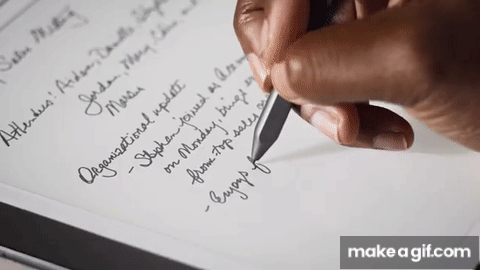 Sales Meeting
Attendees: Aidan, Danielle, Stephen
Jordan, Mary, Chris, and
Marcia
Organizational update
- Stephen joined as
on Monday, brings
from top sales
- Enjoys
makeagif.com